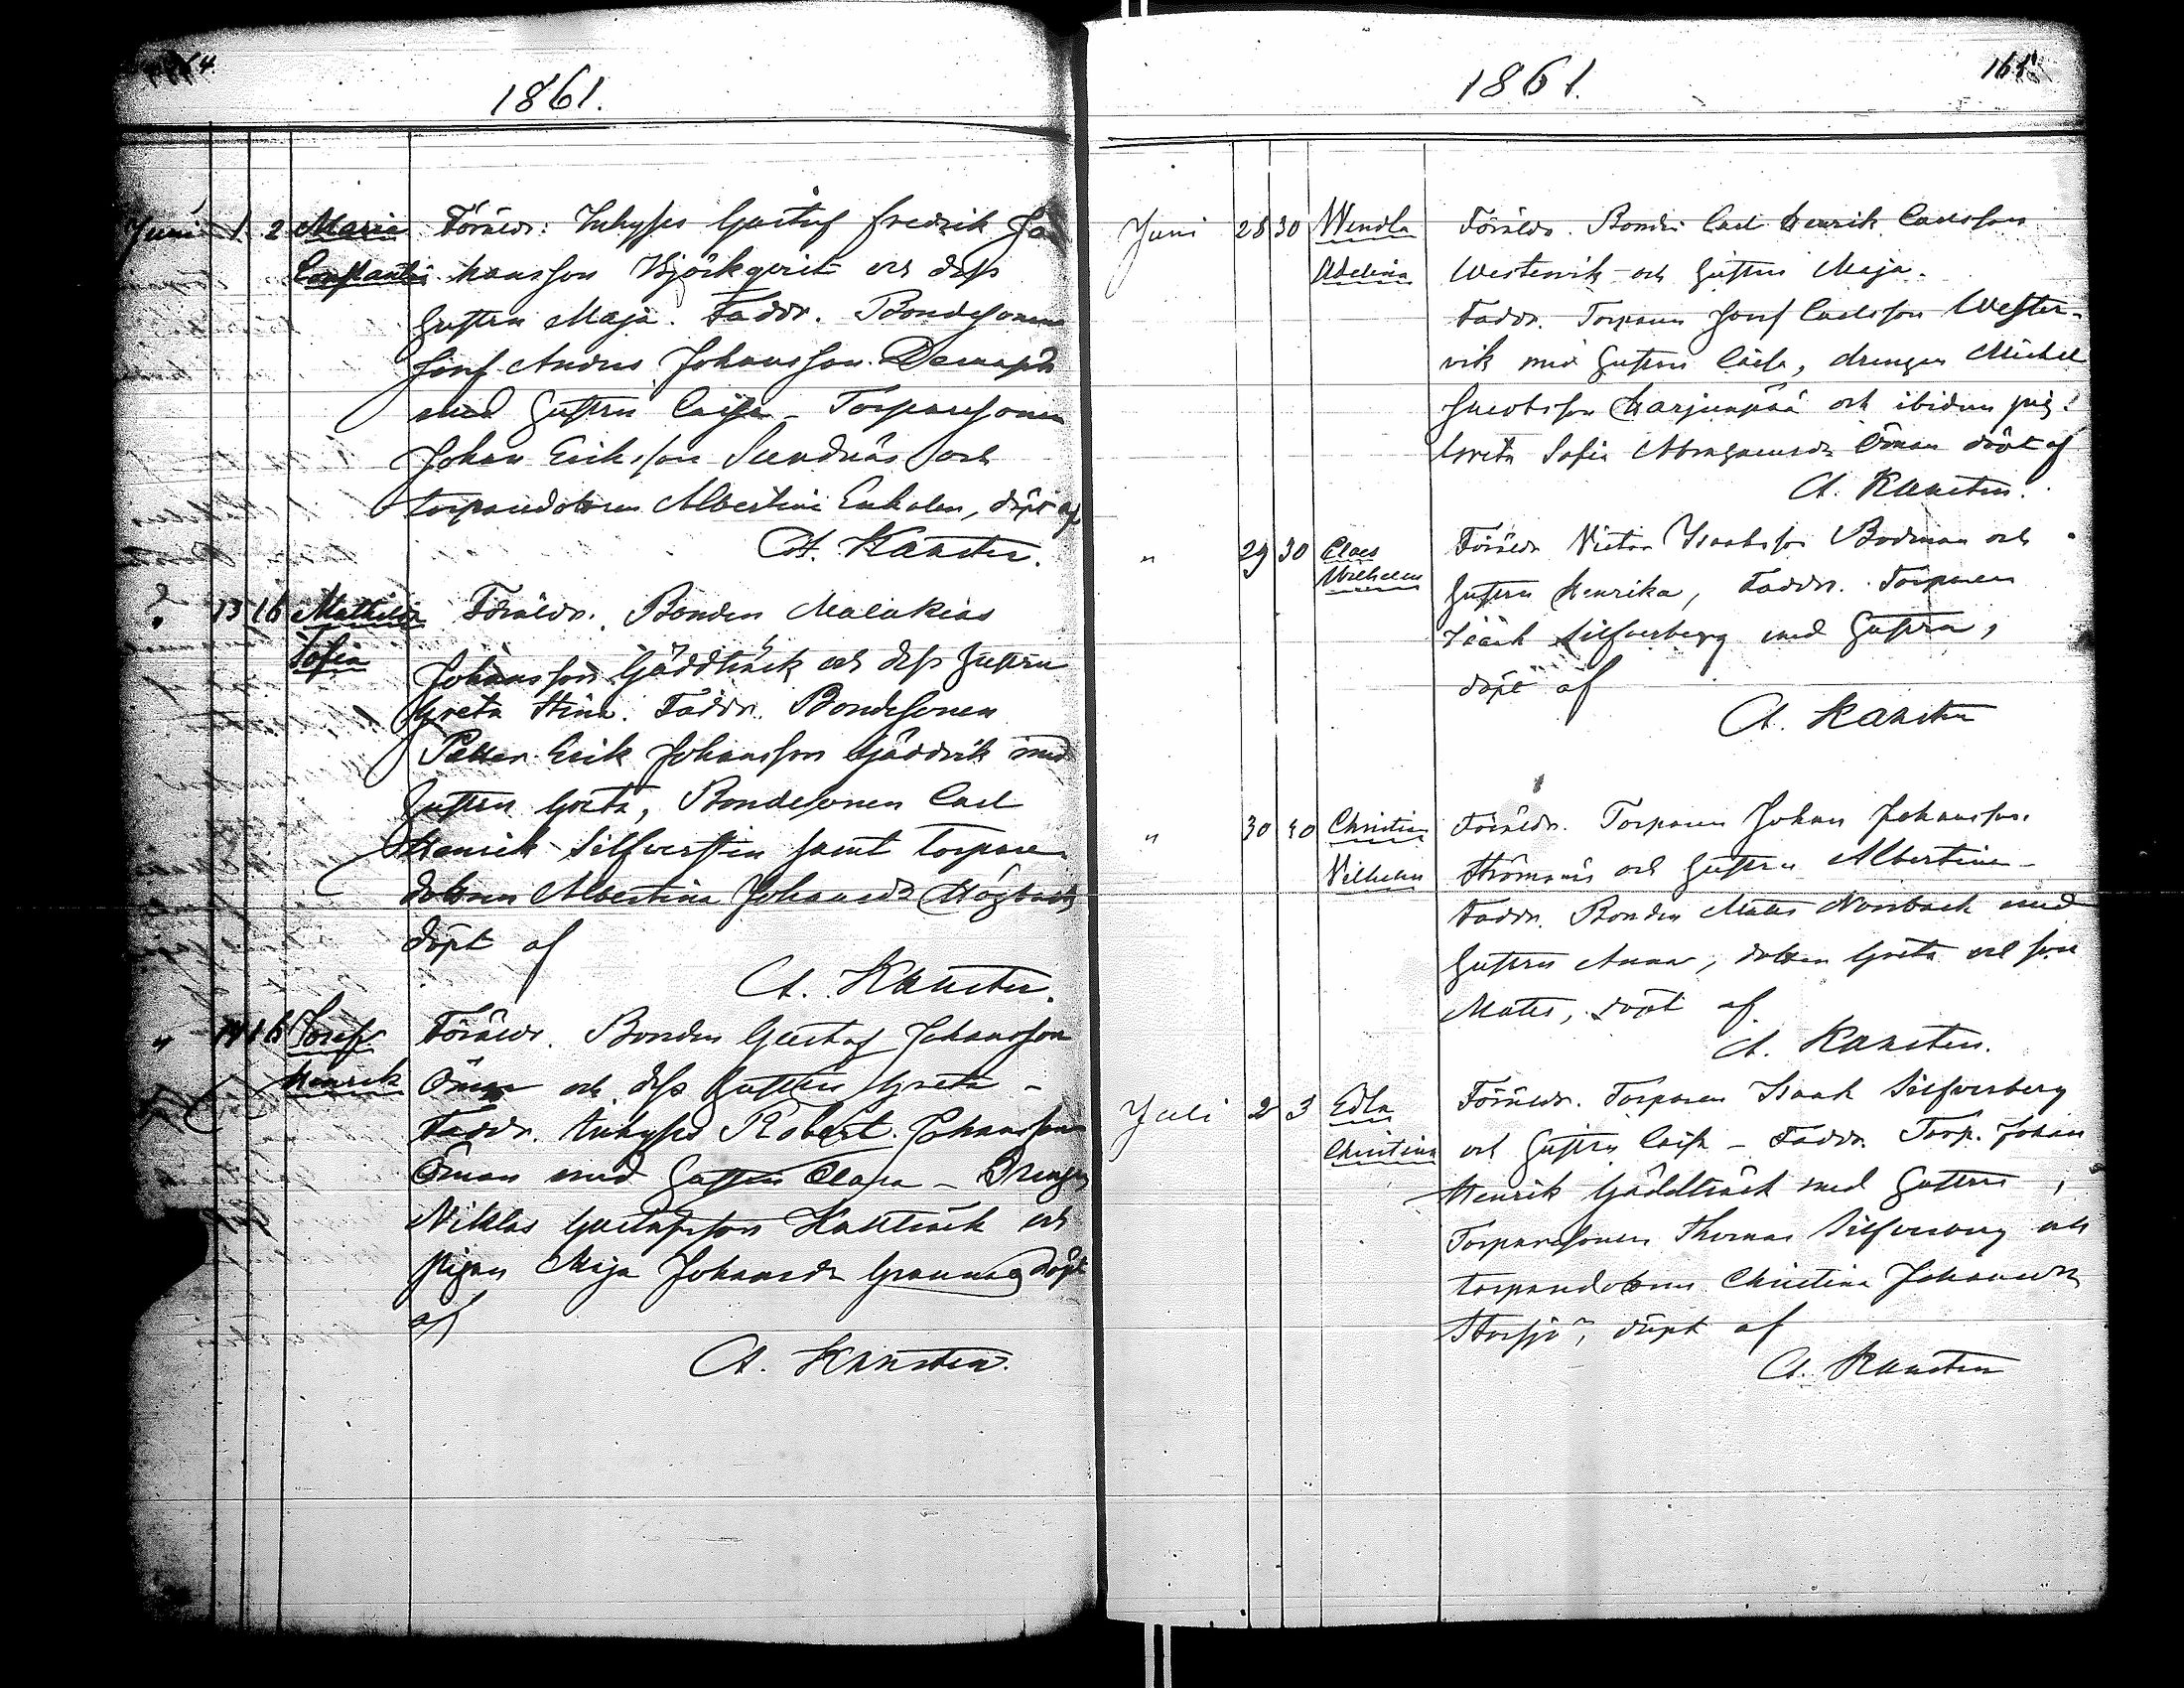 1861.
Juni 1 2 Maria Föräldr: Inhyses Gustaf Fredrik Jo
Constantia hansson Björkqvist och dess
hustru Maja. Faddr. Bondesonen
Josef Andrs Johansson
med hustru Caisa - Torparesonen
Johan Eriksson Sundnäs och
torparedottren Albertina Enholm, döpt af
A. Kansten.
13 16 Mathilda Föräldr. Bonden Malakias
Sofia Johansson Gäddträsk och dess hustru
Greta Stina. Faddr. Bondesonen
Petter Erik Johansson Gäddvik med
hustru Greta, Bondesonen Carl
Henrik Silfversten samt torpare
dottren Albertina Johansdr Högback
döpt af
A. Kansten.
" 14 16 Josef Föräldr. Bonden Gustaf Johansson
Henrik Öman och dess hustru Greta -
Faddr. Inhyses Robert Johansson
Öman med hustru Clara - Drengen
Niklas Gustafsson Kallträsk och
pigan Maja Johansdr döpt
af
A. Kansten.
1861.
Juni 28 30 Wendla Föräldr. Bonden Carl Henrik Carlsson
Adelina Westervik och hustru Maja.
Faddr. Torparen Josef Carlsson Wester-
vik med hustru Caisa, drengen Michel
Jacobsson Harjunpää och ibidem pig.
Greta Sofia Abrahamsdr Öman döpt af
A. Kansten.
" 29 30 Claes Föräldr Victor Isaksson Bodman och
Wilhelm hustru Henrika, Faddr. Torparen
Isaak Silfverberg med hustru,
döpt af
A. Kansten
" 30 30 Christian Föräldr. Torparen Johan Johansson
Vilhelm Strömsnäs och hustru Albertina -
Faddr. Bonden Matts Norrback med
hustru Anna, dottren Greta och son
Matts, döpt af
A. Kansten.
Juli 2 3 Edla Föräldr. Torparen Isaak Silfverberg
Christina och hustru Caisa - Faddr. Torp. Johan
Henrik Gäddträsk med hustru,
Torparesonen Thomas Silfverberg och
torparedottren Christina Johansdr
Storsjö, döpt af
A. Kansten